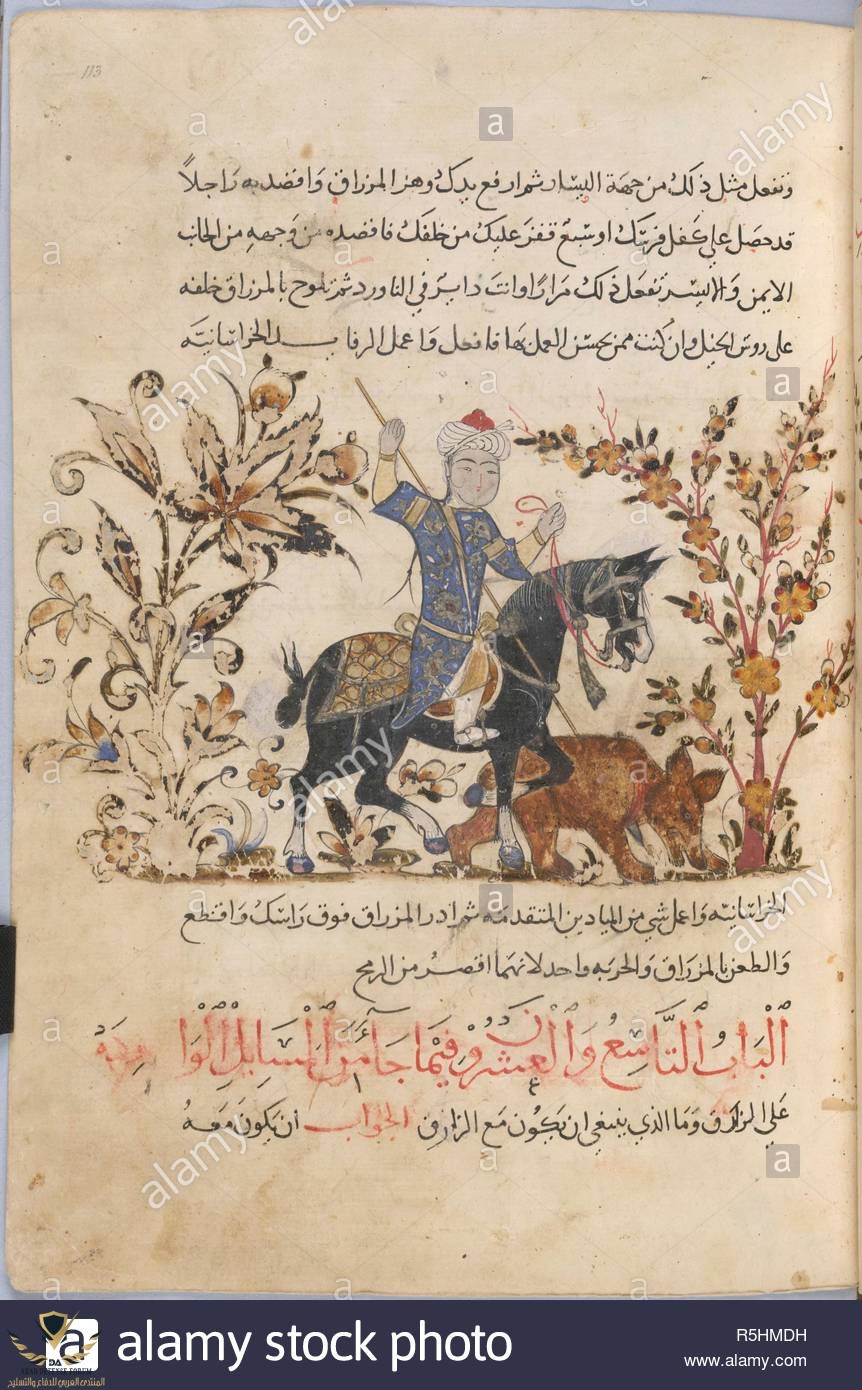 113
وتفعل مثل ذلك من جهة اليسار ثم ارفع يدك وهز المزراق وافصد به راجلاً
قد حصل علي كفل فرسك او سبع قفز عليك من خلفك فافصده من وجهه من الجانب
الايمن والايسر تفعل ذلك مراراً وانت داير في الناورد ثم تلوح بالمزراق خلفه
على روس الخيل وان كنت ممن يحسن العمل بها فافعل واعمل الرفا الخراسانية
الخراسانية واعمل شي من الميادين المتقدمه ثم ادر المزراق فوق راسك واقطع
والطعن بالمزراق والحربه واحد لانهما اقصر من الرمح
الباب التاسع والعشرون فيما جا من المسايل الواردة
علي الزارق وما الذي ينبغي ان يكون مع الزارق الجواب ان يكون معه
alamy
a
DA
ARAB DEFENSE FORUM
المنتدى العربي للدفاع والتسليح
alamy stock photo
R5HMDH
www.alamy.com